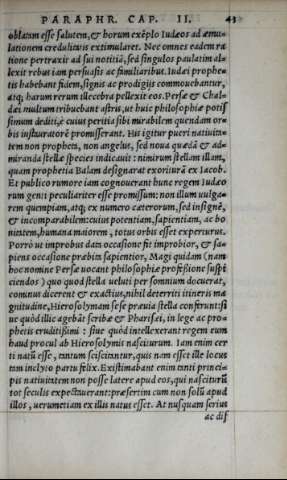 PARAPHR. CAP. II. 43
oblatam esse salutem, & horum exēplo Iudæos ad æmu-
lationem credulitatis extimularet. Nec omnes eadem ra
tione pertraxit ad sui notitiā, sed singulos paulatim al-
lexit rebus iam persuasis ac familiaribus. Iudæi prophe-
tis habebant fidem, signis ac prodigijs commouebantur,
atq; harum rerum illecebra pellexit eos. Persæ & Chal-
dæi multum tribuebant astris, ut huic philosophiæ potis
simum dediti, è cuius peritia sibi mirabilem quendam or-
bis instauratorē promisserant. His igitur pueri natiuita-
tem non propheta, non angelus, sed noua quædā & ad-
miranda stellæ species indicauit: nimirum stellam illam,
quam prophetia Balam designarat exorituram ex Iacob.
Et publico rumore iam cognouerant hunc regem Iudæo
rum genti peculiariter esse promissum: non illum uulga-
rem quempiam, atq; ex numero cæterorum, sed insignē,
& incomparabilem: cuius potentiam, sapientiam, ac bo
nitatem, humana maiorem, totus orbis esset experturus.
Porrò ut improbus data occasione fit improbior, & sa-
piens occasione præbita sapientior, Magi quidam (nam
hoc nomine Persæ uocant philosophiæ professione suspi
ciendos) quo quod stella ueluti per somnium docuerat,
cominus discerent & exactius, nihil deterriti itineris ma
gnitudine, Hierosolymam sese præuia stella conferunt: si
ue quòd illic agebāt scribæ & Pharisæi, in lege ac pro-
phetis eruditissimi: siue quòd intellexerant regem eum
haud procul ab Hierosolymis nasciturum. Iam enim cer
ti natū esse, tantum sciscitantur, quis nam esset ille locus
tam inclyto partu felix. Existimabant enim tanti princi-
pis natiuitatem non posse latere apud eos, qui nasciturū
tot seculis expectauerant: præsertim cum non solū apud
illos, uerumetiam ex illis natus esset. At nusquam serius
ac dif